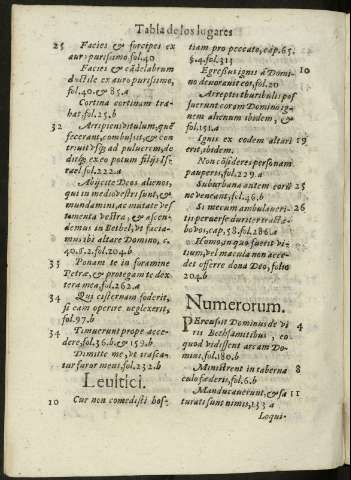 Tabla de los lugares
25 Facies & forcipes ex
auro purissimo, fol. 40
Facies & cādelabrum
ductile ex auro purissimo,
fol. 40. & 85. a
Cortina cortinam tra-
hat. fol. 25. b
32 Arripiens vitulum, quē
fecerant, combusit, & con
truit vsq; ad puluerem, de
ditq; ex eo potum filijs Is-
rael fol. 222. a
Abijcite Deos alienos,
qui in medio vestri sunt, &
mundamini, ac mutate ves
timenta vestra, & ascen-
demus in Bethel, vt facia-
mus ibi altare Domino, c.
40. §. 2. fol. 204. b
33 Ponam te in foramine
Petra, & protegam te dex
tera mea, fol. 262. a
34 Qui cisternam foderit,
si eam operire neglexerit,
fol. 97. b
34 Timuerunt prope acce-
dere, fol. 36. b. & 159. b.
Dimitte me, vt irasca-
tur furor meus, fol. 232. b
Leuitici.
10 Cur non comedisti hos-
tiam pro peccato, cap. 65.
§. 4. fol. 313
Egressus ignis à Domi- 10
no deuorauit eos, fol. 20
Arreptis thuribulis pos
suerunt coram Domino ig-
nem alienum ibidem, &
fol. 151. a
Ignis ex eodem altari 19
erit, ibidem.
Non cōsideres personam
pauperis, fol. 229. a
Suburbana autem eorū 25
ne veneant, fol. 46. b
Si mecum ambulaueri- 26
tis peruerse duriter tractē-
bo vos, cap. 58. fol. 286. a
Homo, in quo fuerit vi-
tium, vel macula non acce-
det offerre dona Deo, folio
204. b
Numerorum.
PErcussit Dominus de vi 4
ris Bethsamitibus, eo
quod vidissent arcam Do-
mini, fol. 180. b
Ministrent in taberna 8
culo fœderis, fol. 6. b
Manducauerunt, & sa 11
turati sunt nimis, 133. a
Loqui-